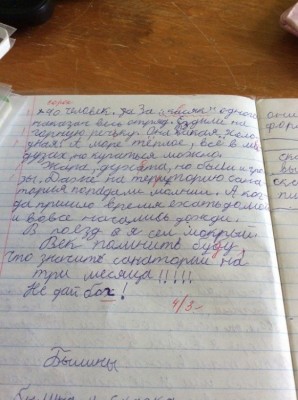 человек. Да за одного
наказан весь отряд. Ездили на
горную речьку. Она какая холо-
дная! А море теплое, всё в ме
дузах но купаться можно.
Жара, духота, но были и гро
зы. Даже на территорию сана
тория попадали молнии. А ког
да пришло время ехать домой
и вовсе начались дожди.
В поезд я сел мокрый.
Век помнить буду,
что значить санаторий на
три месяца!!!!!
Не дай бох!
4/3-
Былины